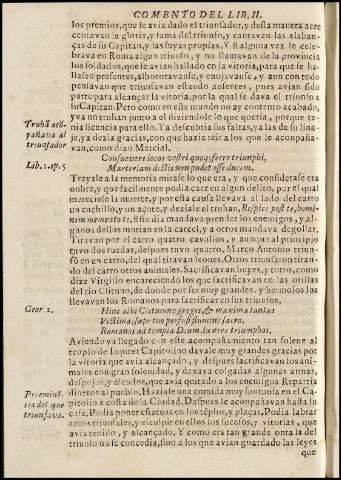 COMENTO DEL LIB. II.
los premios, que le avia dado el triunfador, y desta manera acre
centavan la gloria, y fama del triunfo, y cantavan las alaban
ças de su Capitan, y las suyas propias. Y si alguna vez se cele-
brava en Roma algun triunfo, y no llamavan de la provincia
los soldados, que se avian hallado en la vitoria, para que se ha-
llassen presentes, alborotavanse, y enojavanse, y aun con todo
pensavan que triunfavan estando ausentes, pues avian sido
parte para alcançar la vitoria, por la qual se dava el triunfo a
su Capitan. Pero como en este mundo no ay contento acabado,
yva un truhan junto a el diziendole lo que queria, porque te-
nia licencia para ello. Ya descubria sus faltas, ya las de su lina-
je, ya dezia gracias, con que hazia reir a los que le acompaña-
van, como dizo Marcial.
Truhã acõ-
pañava al
triunfador
Lib. 1. ep. 5
Consuevere iocos vestri quoq; ferre triumphi,
Materiam dictis non pudet esse ducem.
Trayale a la memoria mirasse lo que era, y que considerasse era
onbre, y que facilmente podia caer en algun delito, por el qual
mereciesse la muerte, y por esta causa llevava al lado del carro
un cuchillo, y un açote, y dezia le el truhan, Respice post te, homi-
nem memento te. Este dia mandava prender los enemigos, y al-
gunos dellos morian en la carcel, y a otros mandava degollar.
Tiravan por el carro quatro cavallos, y aunque al principio
tuvo dos ruedas, despues tuvo quatro. Marco Antonio triun-
fó en un carro, del qual tiravan leones. Otros triunfaron tiran-
do del carro otros animales. Sacrificavan bueyes, y toros, como
dize Virgilio encareciendo los que sacrificavan en las orillas
del rio Clitunno, donde por ser muy grandes, y hermosos los
llevavan los Romanos para sacrificar en sus triunfos.
Geor. 2.
Hinc albi Clitumne greges, & maxima taurus
Victima, sæpe tuo perfusi flumine sacro.
Romanos ad templa Deum duxere triumphos.
Aviendo ya llegado con este acompañamiento tan solene al
templo de Iupiter Capitolino davale muy grandes gracias por
la vitoria que avia alcançado, y despues sacrificavan los ani-
males con gran solenidad, y dexava colgadas algunas armas,
despojos, y escudos, que avia quitado a los enemigos. Repartia
dineros al pueblo. Haziale una comida muy suntuosa en el Ca-
pitolio a costa de la Ciudad. Despues le acompañavan hasta su
casa. Podia poner estatuas en los tẽplos, y plaças. Podia labrar
arcos triunfales, y esculpir en ellos los sucessos, y vitorias, que
avia tenido, y alcançado. Y como era tan grande onra la del
triunfo no se concedia, sino a los que avian guardado las leyes
Preeminẽ-
cia del que
triunfava.
que